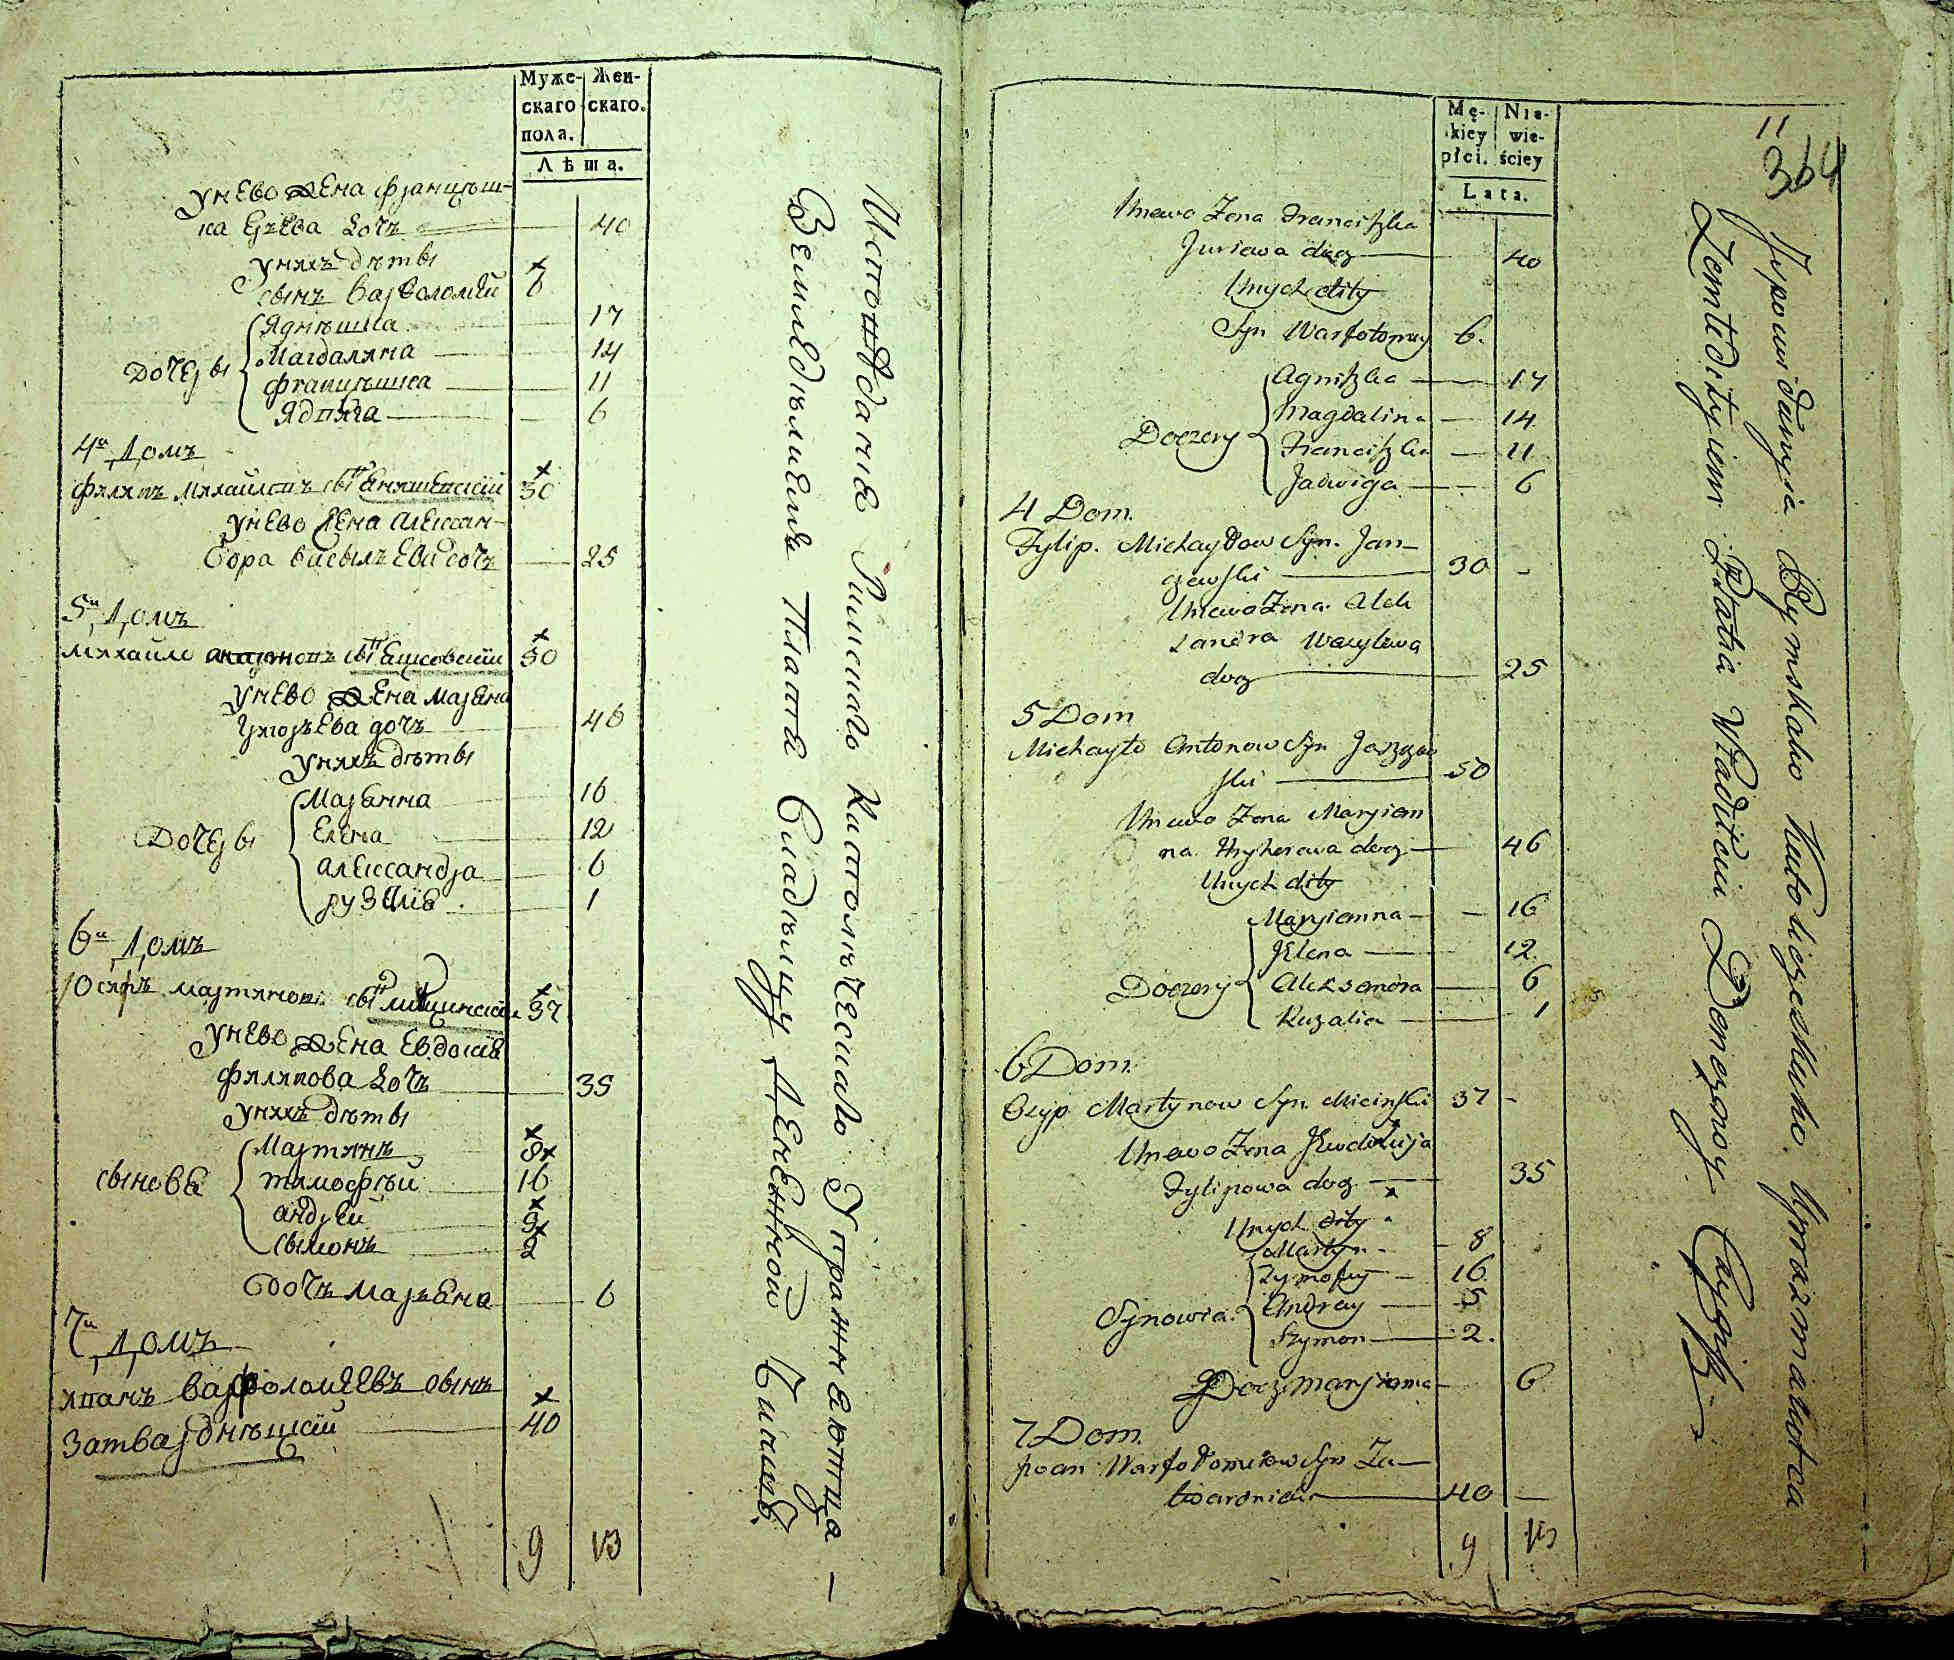 Муже-
скаго
пола.
Жен-
скаго.
Лѣта.
унево жена францѣш-
ка Ерева дочъ 40
унихъ дѣты
сынъ варѳоломей 6
Дочеры
Ягнѣшка 17
Магдалина 14
францѣшка 11
Ядвига 6
4й Домъ
филипъ михайловъ сынъ 30
унево жена алексан-
дра васылъева дочъ 25
5й Домъ
михайло антоновъ сынъ Яшковскій 50
унево жена маръена
Григоръева дочъ 46
унихъ дѣты
Дочеры
Маръянна 16
Елена 12
александра 6
рузалія 1
6й Домъ
Юсифъ мартиновъ сынъ мицинскій 37
унево жена Евдокія
филипова дочъ 35
унихъ дѣты
сыновя
Мартинъ 8
тимофѣй 16
андрей
сымонъ 2
дочъ маръяна 6
7й Домъ
ипанъ варфоломеевъ сынъ
затвардницкій 40
9 13
Исповѣданіе Римскаго Католическаго Упражняютца
Земледѣліемъ Платя владѣлцу Денежной Чиншъ
Mę-
kiey
płci.
Nie-
wie-
ściey
Lata.
11
364
Unewo Żena Franciszka
Juriewa docz 40
Unych dity
Syn Warfołomey 6.
Doczery
Agniszka 17
Magdalina 14
Franciszka 11
Jadwiga 6
4 Dom.
Fylip. Michayłow Syn. Jan-
czewski 30
Unewo Żena Alek
sandra Wasylewa
docz 25
5 Dom
Michayło Antonow Syn Jaszkow
ski 50
Unewo Żena Maryian
na Hryhorewa docz 46
Unych dity
Doczery
Maryianna 16
Jelena 12
Aleksandra 6
Ruzalia 1
6 Dom.
Osyp Martynow Syn Micinski 37
Unewo Żena Jewdokija
Fylipowa docz 35
Unych dity
Synowia.
Martyn 8
Tymofiey 16
Andrey 5
Szymon 2.
Docz Maryiana 6
7 Dom.
Iwan Warfołomeiow Syn Za-
twardnicki 40
9 13
Ispowidanyja Rymskoho Katoliczeskoho Uprazniaiutca
Zemledilyiem Płatia Władilcu Deneżnoy Czynsz